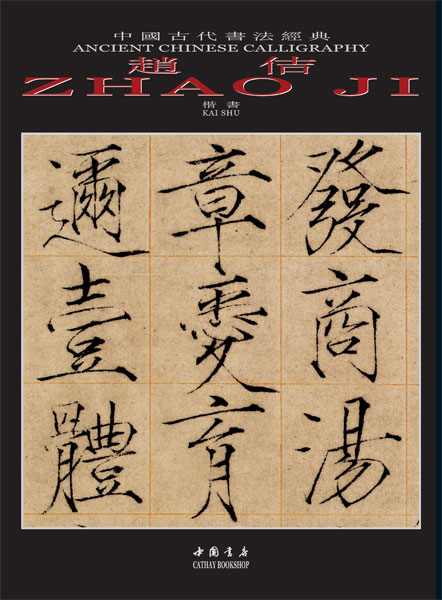 中國古代書法經典
ANCIENT CHINESE CALLIGRAPHY
趙 佶
ZHAO JI
楷書
KAI SHU
發商湯
章愛育
邇壹體
中国書店
CATHAY BOOKSHOP